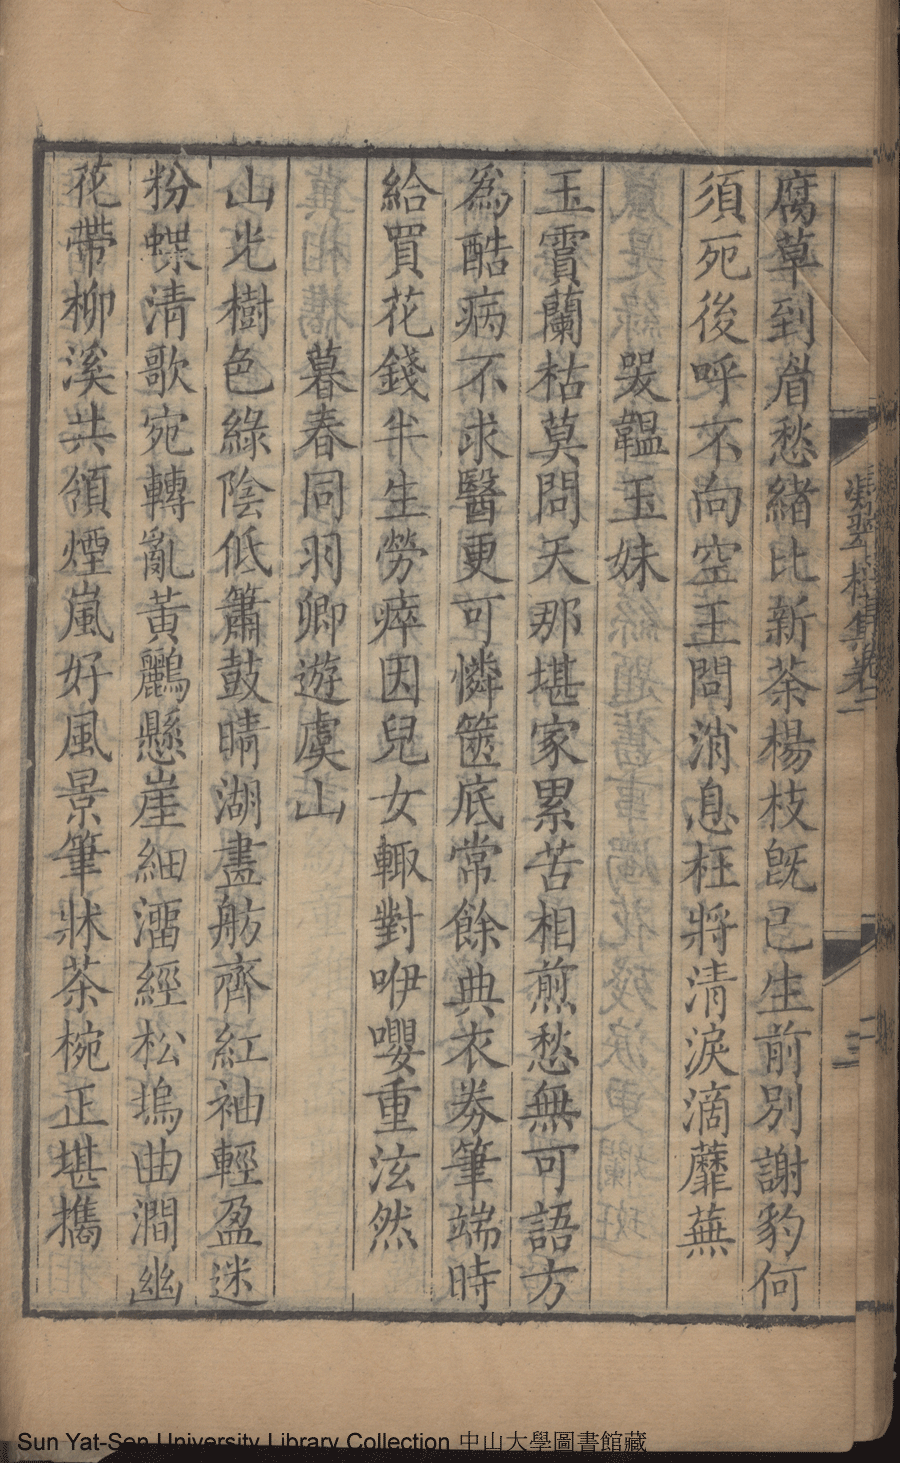 腐草到眉愁緒比新茶楊枝旣已生前別謝豹何
須死後呼不向空王問消息枉將清淚滴蘼蕪
哭韞玉妹
玉霣蘭枯莫問天那堪家累苦相煎愁無可語方
為酷病不求醫更可憐篋底常餘典衣券筆端時
給買花錢半生勞瘁因兒女輙對咿嚶重泫然
暮春同羽卿遊虞山
山光樹色綠陰低簫鼓晴湖畫舫齊紅袖輕盈迷
粉蝶清歌宛轉亂黃鸝懸崖細溜經松塢曲澗幽
花帶柳溪共領煙嵐好風景筆牀茶椀正堪攜
Sun Yat-Sen University Library Collection 中山大學圖書館藏